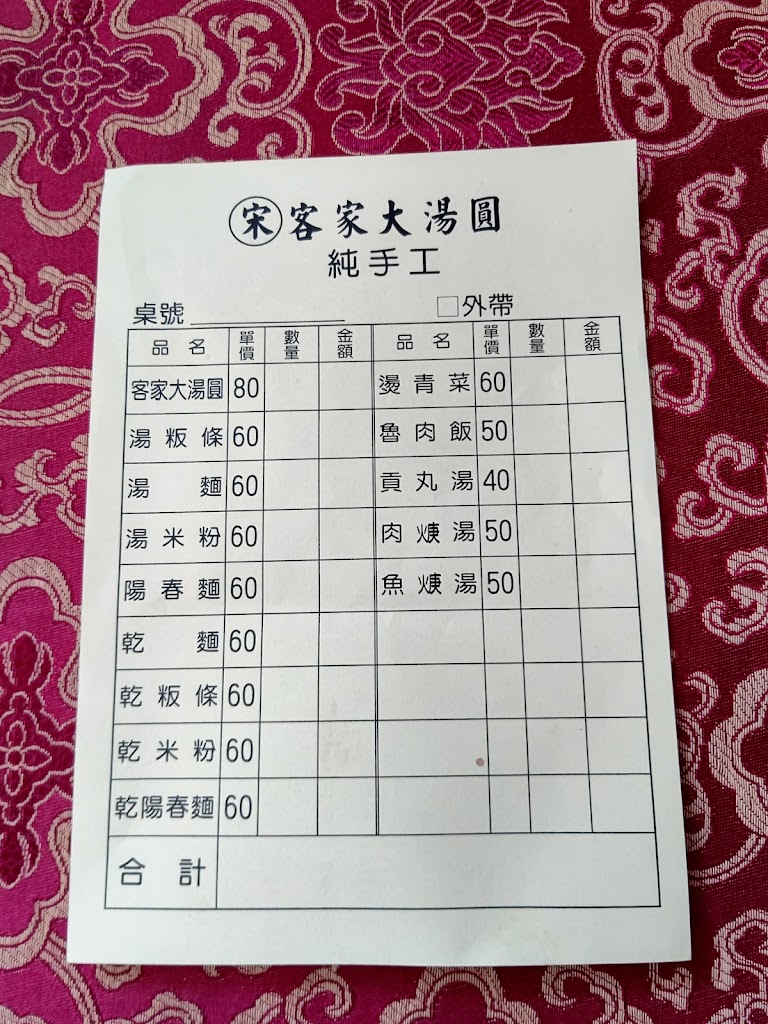 宋客家大湯圓
純手工
桌號 □外帶
品名 單價 數量 金額 品名 單價 數量 金額
客家大湯圓 80 燙青菜 60
湯粄條 60 魯肉飯 50
湯麵 60 貢丸湯 40
湯米粉 60 肉焿湯 50
陽春麵 60 魚焿湯 50
乾麵 60
乾粄條 60
乾米粉 60
乾陽春麵 60
合計